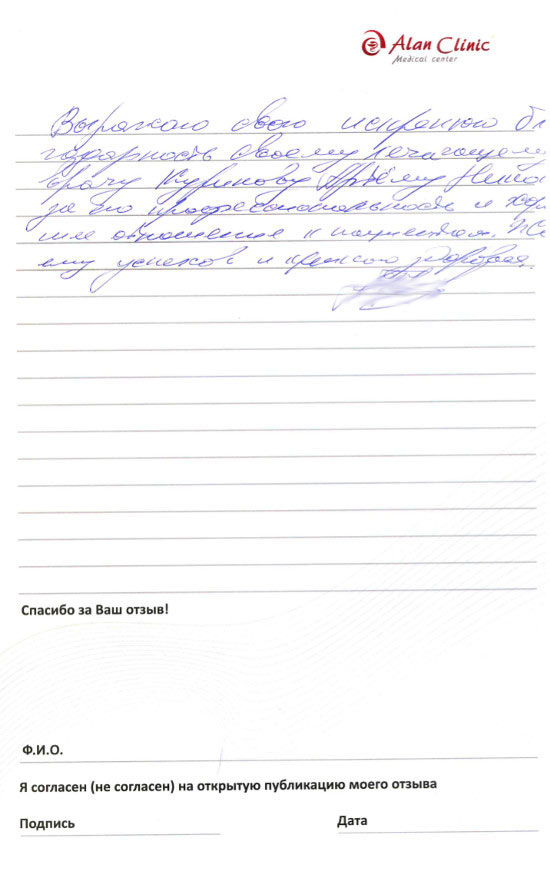 Alan Clinic
Medical center
Выражаю свою искреннюю бл
годарность своему лечащем
врачу Курикову Артёму
за его профессиональность и хор
шие отношение к пациентам.
ему успехов и крепкого здоровья.
Спасибо за Ваш отзыв!
Ф.И.О.
Я согласен (не согласен) на открытую публикацию моего отзыва
Подпись
Дата